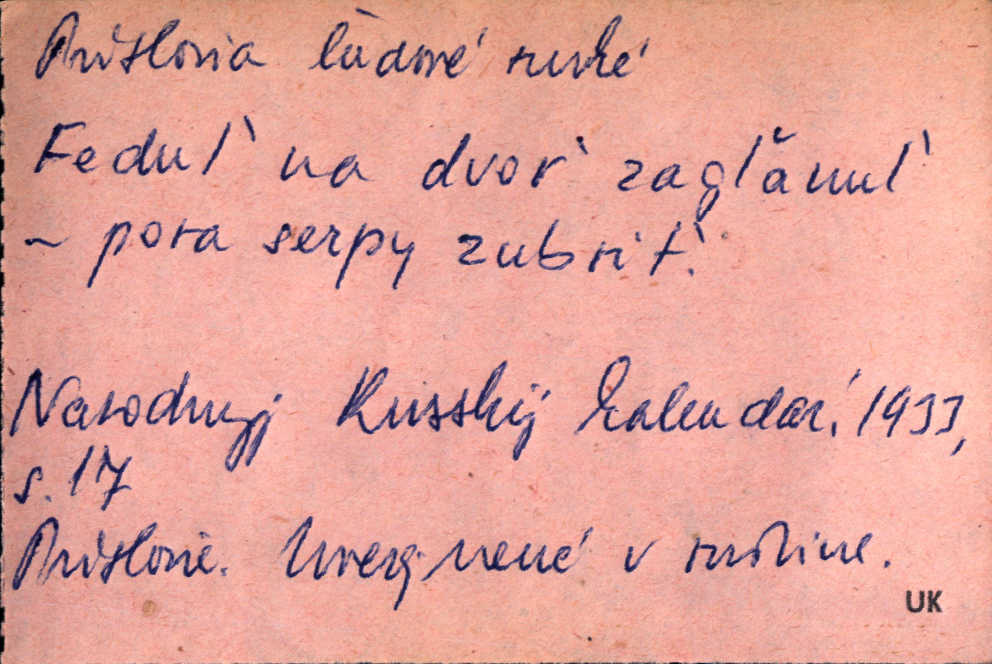 Príslovia ľudové ruské
Feduľ na dvoŕ zagľănuľ
- pora serpy zubriť.
Narodnyj Russkij kalendar, 1933,
s. 17
Príslovie. Uverejnené v ruštine.
UK